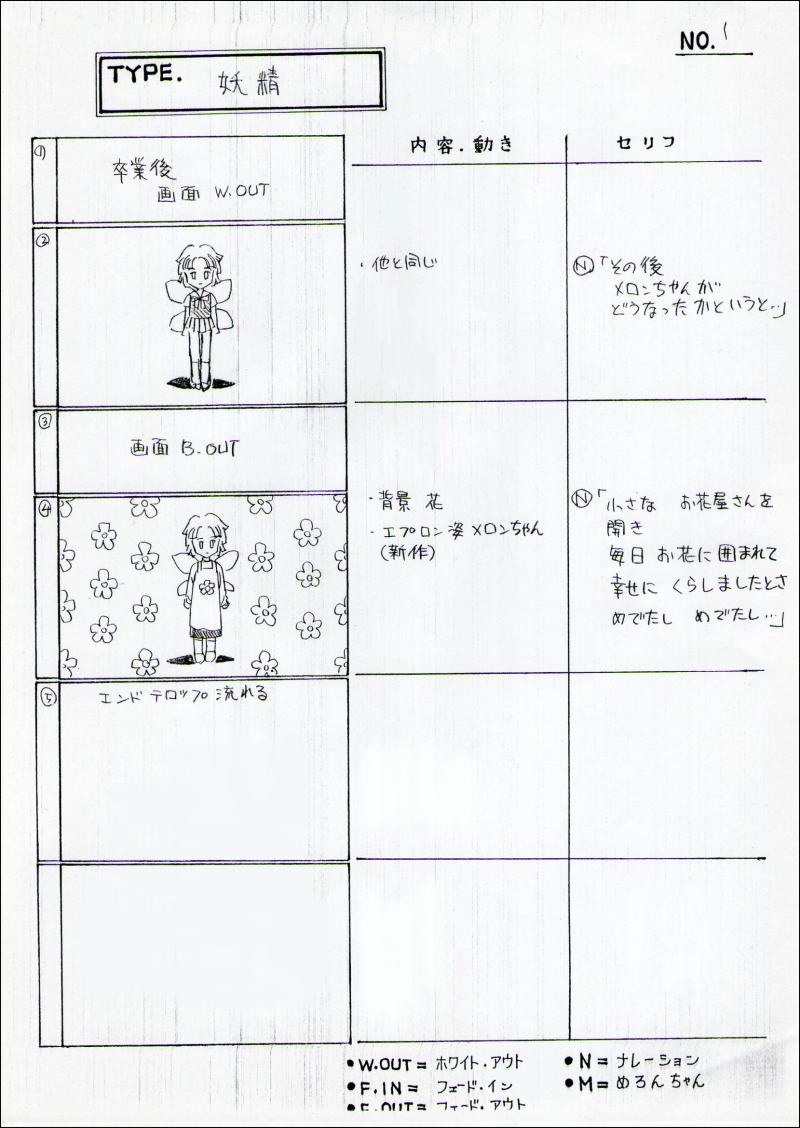 NO. 1
TYPE. 妖精
内容．動き
セリフ
①
卒業後
画面 W.OUT
②
・他と同じ
Ⓝ「その後
メロンちゃんが
どうなったかというと…」
③
画面 B.OUT
④
・背景 花
・エプロン姿メロンちゃん
(新作)
Ⓝ「小さな お花屋さんを
開き
毎日 お花に囲まれて
幸せに くらしましたとさ
めでたし めでたし…」
⑤
エンド テロップ 流れる
●W.OUT= ホワイト・アウト
●F.IN= フェード・イン
●F.OUT= フェード・アウト
●N= ナレーション
●M= めろんちゃん